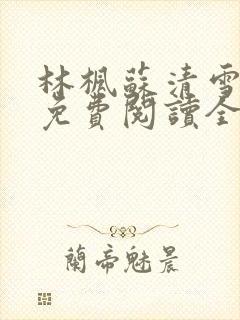 林楓蘇清雪
免費閱讀全
蘭帝魅晨